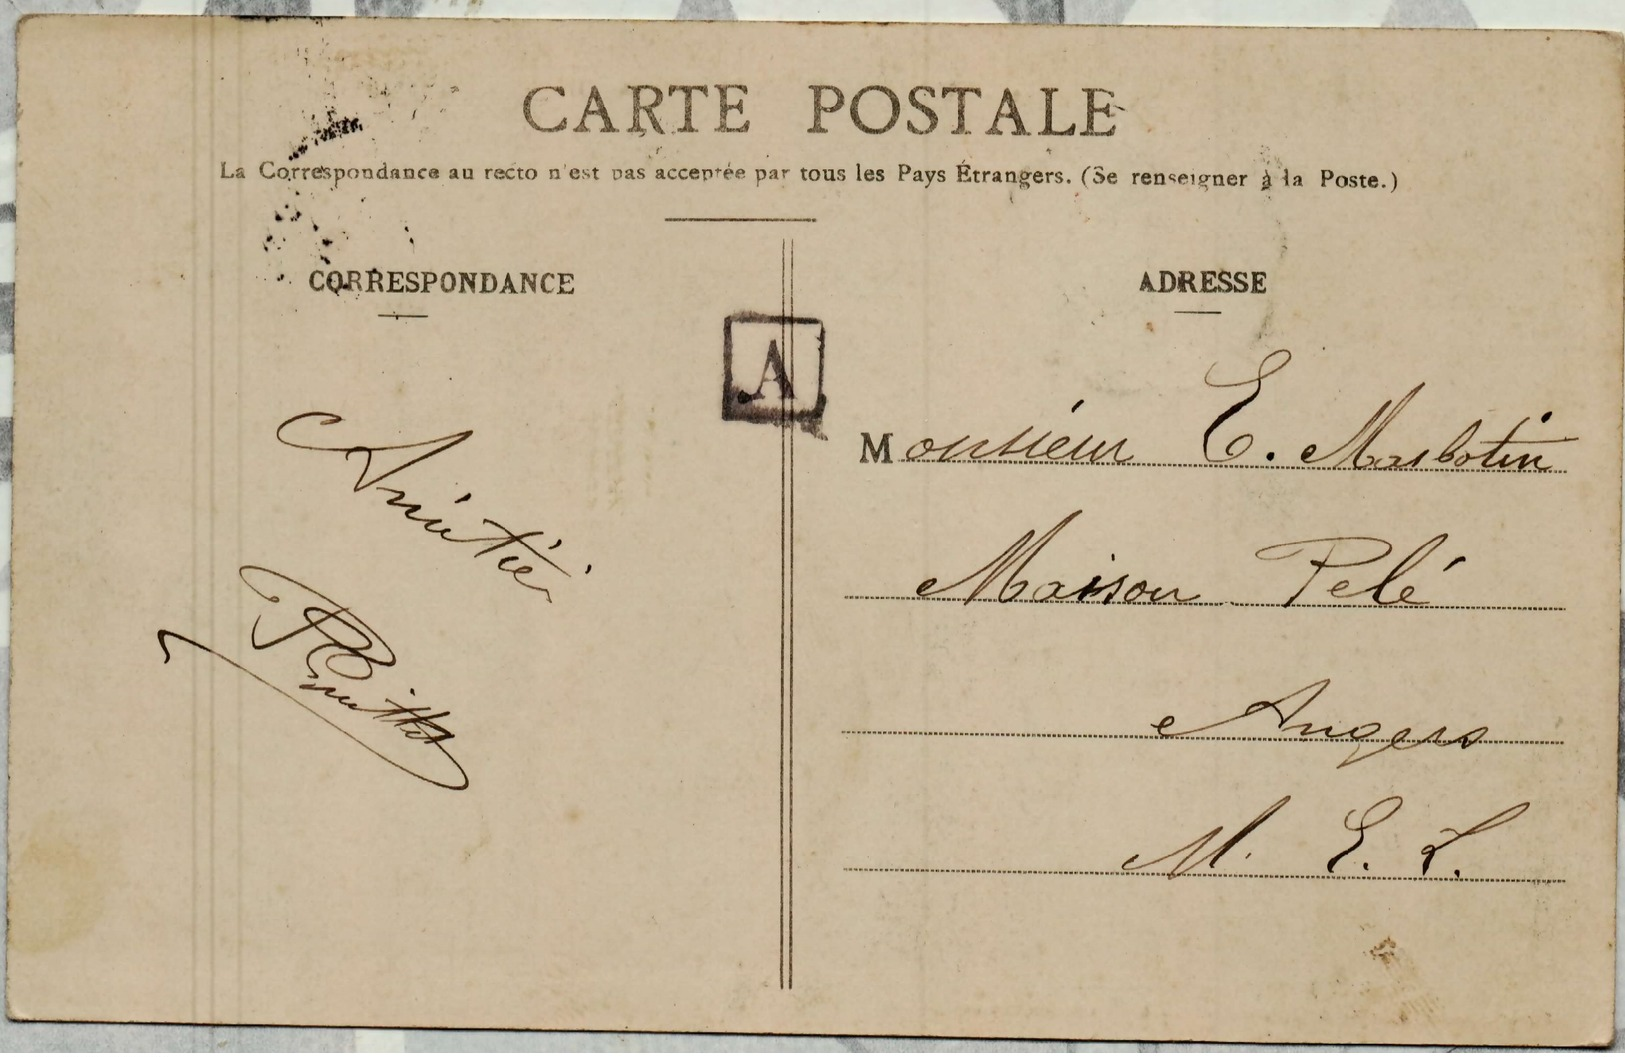 CARTE POSTALE
La Correspondance au recto n'est pas acceptée par tous les Pays Étrangers. (Se renseigner à la Poste.)
CORRESPONDANCE
Amitié
A
ADRESSE
Monsieur E. Marbotin
Maison Pelé
Angers
M. E. L.